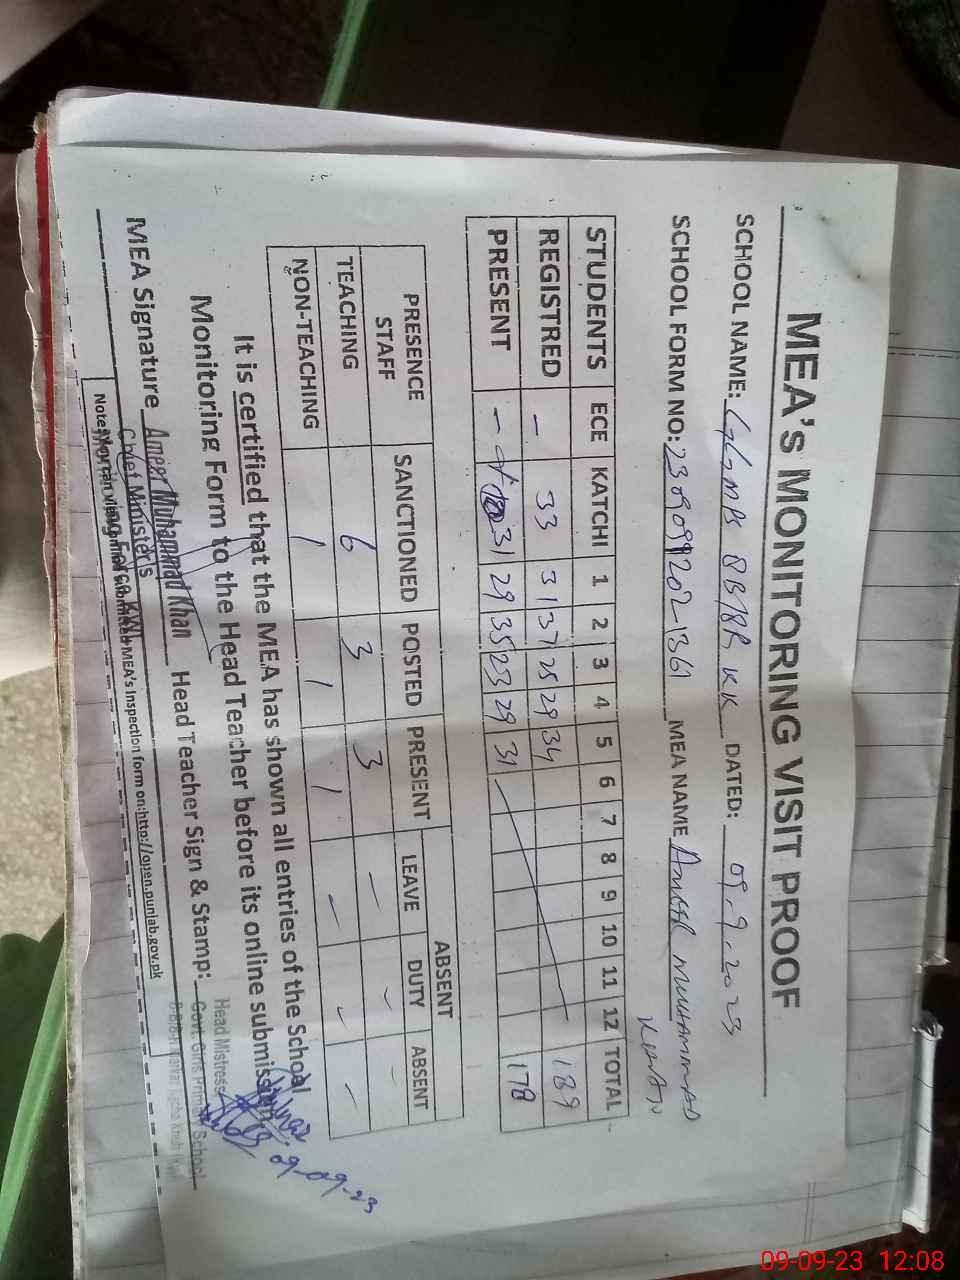 MEA's MONITORING VISIT PROOF
SCHOOL NAME: GGMPS 8B/8R KK DATED: 09.9.2023
SCHOOL FORM NO: 2309099202-1361 MEA NAME AMEER MUHAMMAD
KHAN
STUDENTS ECE KATCHI 1 2 3 4 5 6 7 8 9 10 11 12 TOTAL
REGISTRED - 33 31 37 25 29 34 189
PRESENT - 31 29 35 23 29 31 178
PRESENCE STAFF SANCTIONED POSTED PRESENT ABSENT
LEAVE DUTY ABSENT
TEACHING 6 3 3 - - -
NON-TEACHING 1 1 1 - - -
It is certified that the MEA has shown all entries of the School
Monitoring Form to the Head Teacher before its online submission.
09-09-23
MEA Signature Ameer Muhammad Khan Head Teacher Sign & Stamp:
Chief Minister's
Head Mistress
Govt. Girls Primary School
Note: You can view MEA's Inspection form on:http://open.punjab.gov.pk
09-09-23 12:08